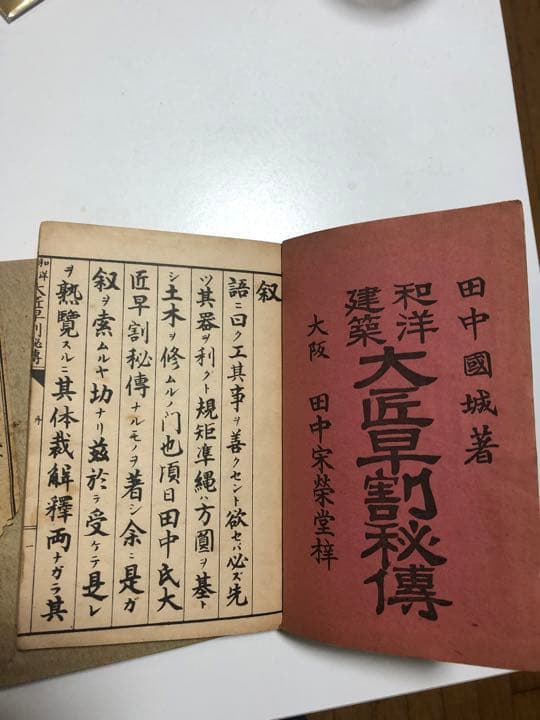 田中國城著
和洋建築大匠早割秘傳
大阪 田中宋榮堂梓
叙
語ニ曰ク工其事ヲ善クセント欲セバ必ズ先
ツ其器ヲ利クト規矩準縄ハ方圓ヲ基ト
シ土木ヲ修ムルノ門也頃日田中氏大
匠早割秘傳ナルモノヲ著シ余ニ是ガ
叙ヲ索ムルヤ切ナリ茲於ラ受ケテ是レ
ヲ熟覽スルニ其体裁解釋両ナガラ其
和洋大匠早割秘傳 序 一